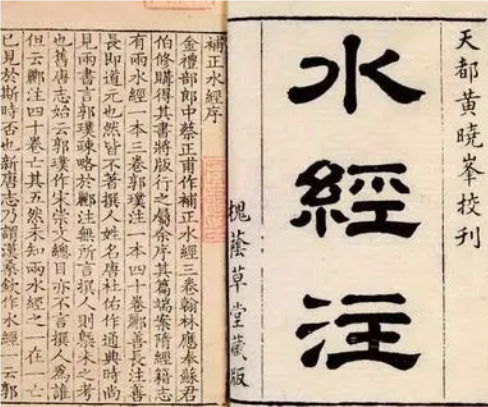 天都黃曉峯挍刊
水經注
槐蔭草堂藏版
補正水經序
金禮部郎中蔡正甫作補正水經三卷翰林應奉蘇君
伯修購得其書將版行之屬余序其篇端案隋經籍志
有兩水經一本三卷郭璞注一本四十卷酈善長注善
長即道元也然皆不著撰人姓名唐杜佑作通典時尚
見兩書言郭璞疎略於酈注無所言撰人則槩未之考
也舊唐志始云郭璞作宋崇文總目亦不言撰人為誰
但云酈注四十卷亡其五然未知兩水經之一在一亡
已見於斯時否也新唐志乃謂漢桑欽作水經一云郭